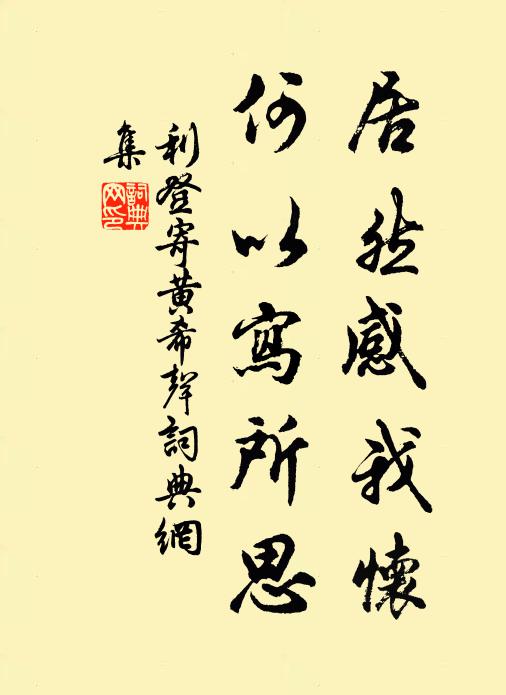 居然感我懷
何以寫所思
利登寄黃希聲詞典網
集
詞典
网印